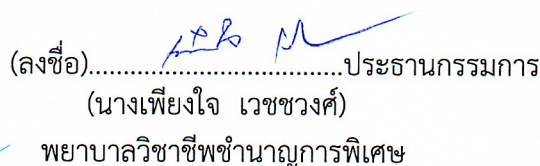 (ลงชื่อ)....................................ประธานกรรมการ
(นางเพียงใจ เวชชวงศ์)
พยาบาลวิชาชีพชำนาญการพิเศษ